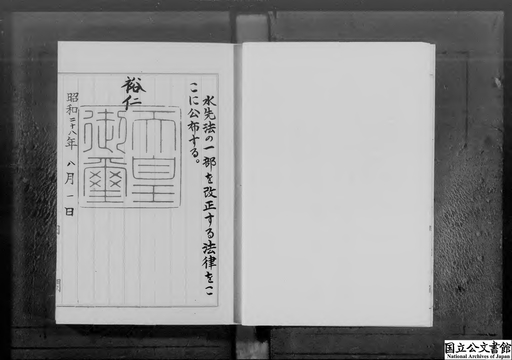 水先法の一部を改正する法律をこ
こに公布する。
裕仁
天皇
御璽
昭和二十八年八月一日
国立公文書館
National Archives of Japan